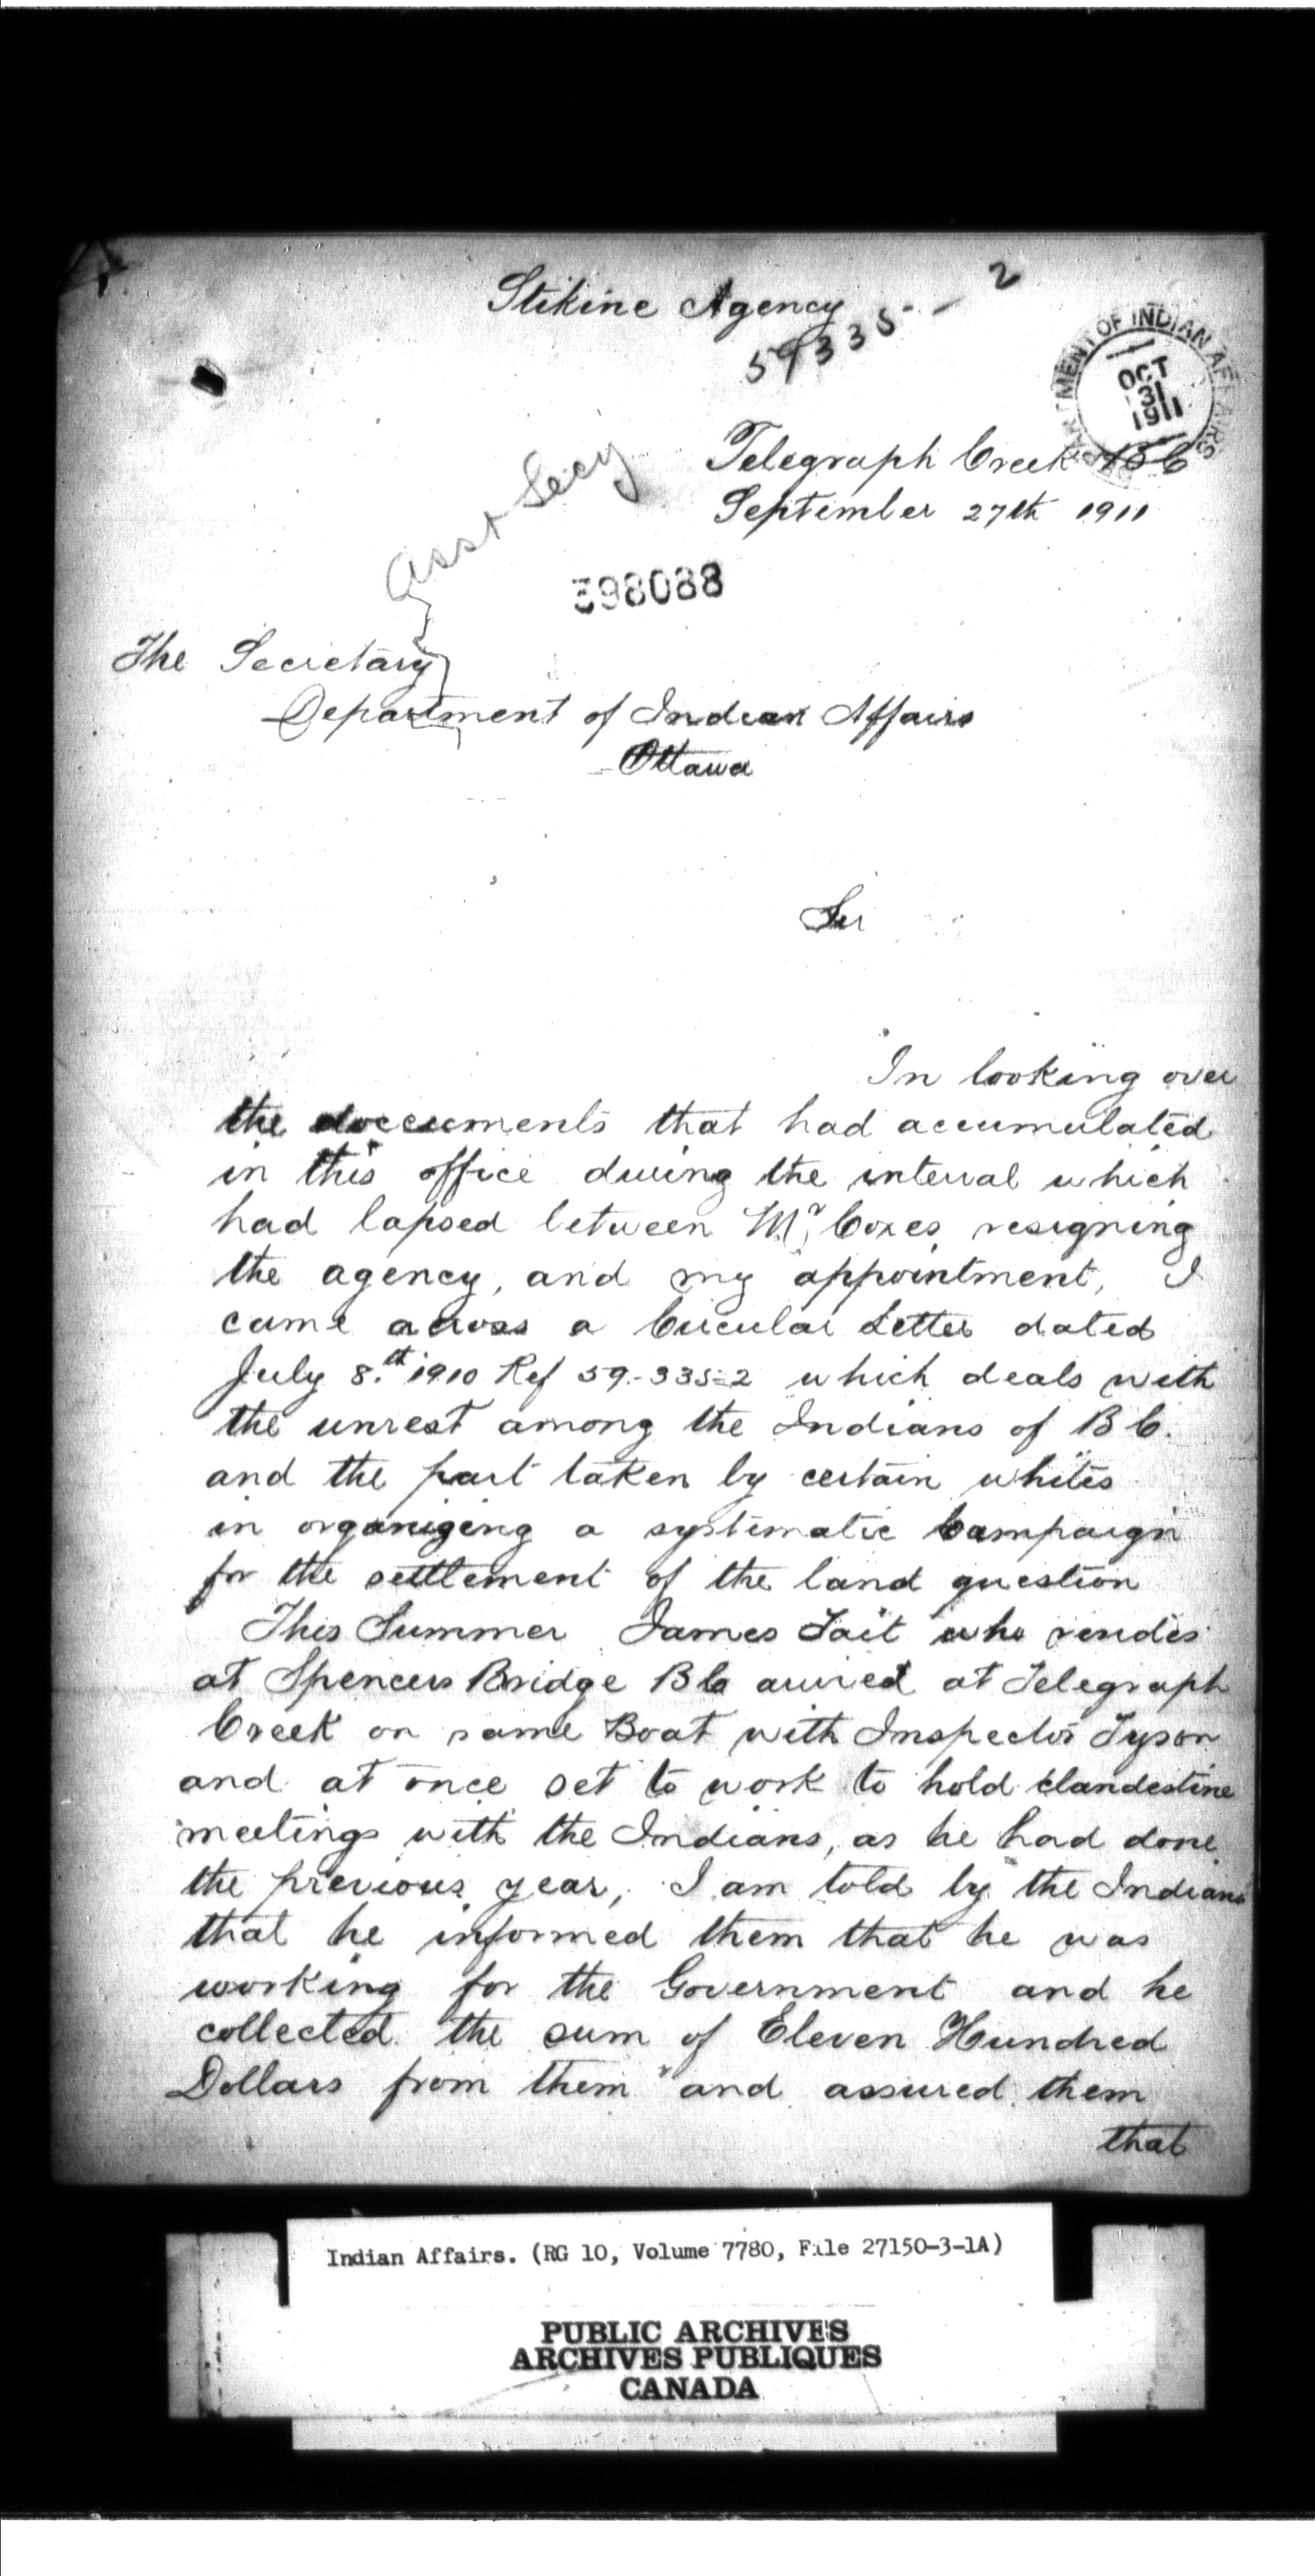 Stikine Agency
59335-2
DEPARTMENT OF INDIAN AFFAIRS
OCT
31
1911
Telegraph Creek BC
September 27th 1911
Asst Secy
398088
The Secretary
Department of Indian Affairs
Ottawa
Sir
In looking over
the documents that had accumulated
in this office during the interval which
had lapsed between Mr Coxes resigning
the agency, and my appointment, I
came across a Circular Letter dated
July 8th 1910 Ref 59-335-2 which deals with
the unrest among the Indians of B C.
and the part taken by certain whites
in organizing a systematic Campaign
for the settlement of the land question
This Summer James Tait who resides
at Spencers Bridge BC arrived at Telegraph
Creek on same Boat with Inspector Tyson
and at once set to work to hold clandestine
meetings with the Indians, as he had done
the previous year, I am told by the Indians
that he informed them that he was
working for the Government and he
collected the sum of Eleven Hundred
Dollars from them and assured them
that
Indian Affairs. (RG 10, Volume 7780, File 27150-3-1A)
PUBLIC ARCHIVES
ARCHIVES PUBLIQUES
CANADA